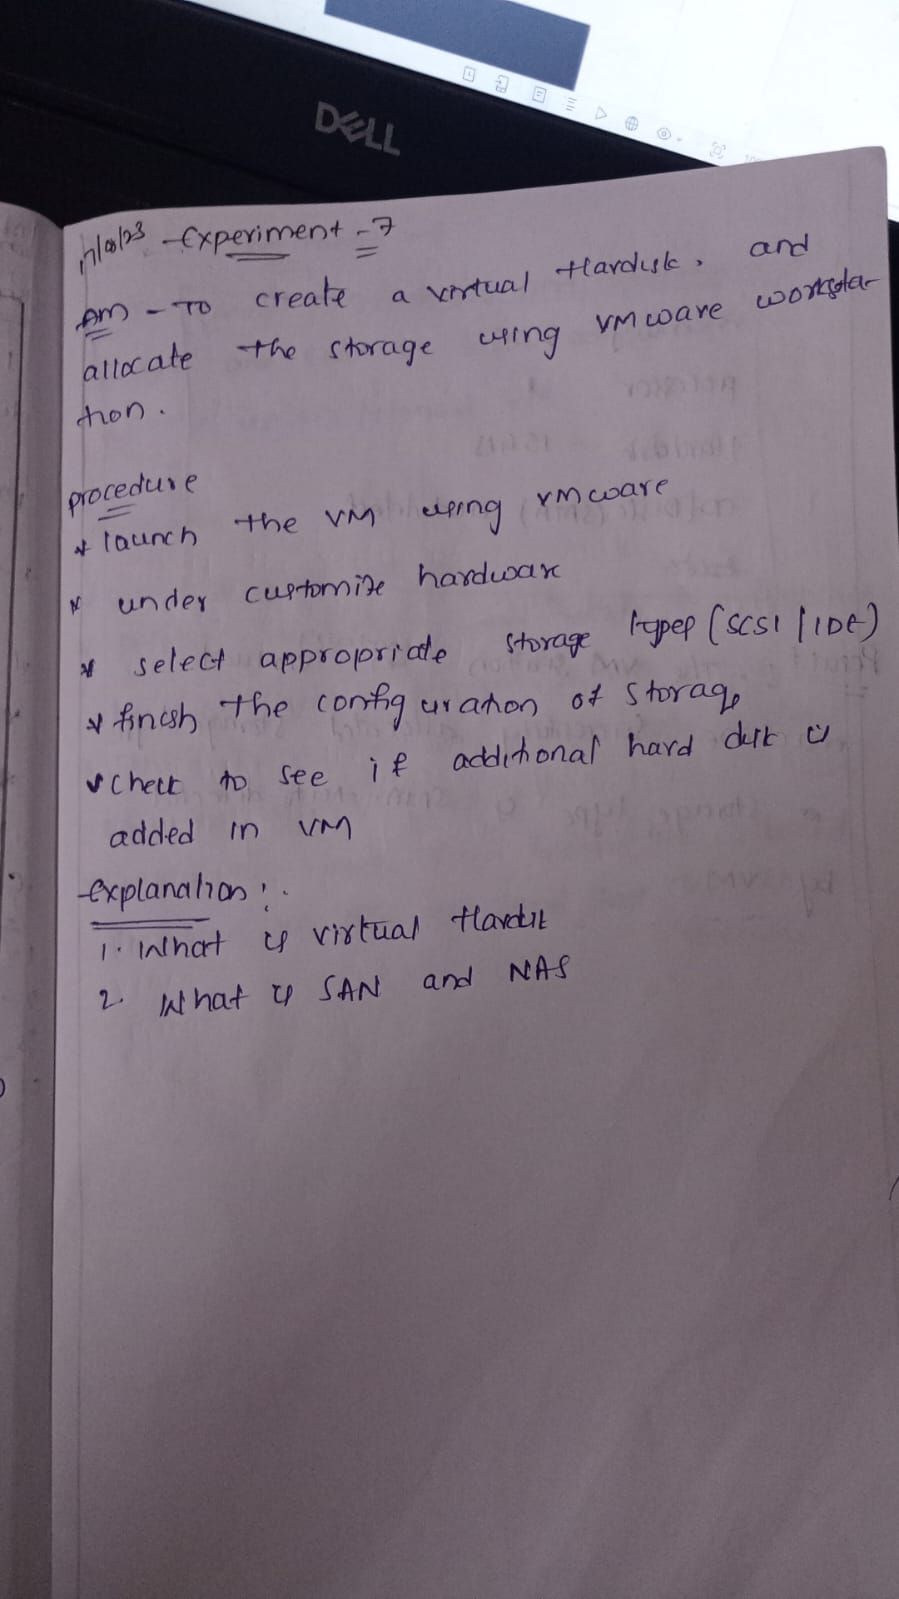 DELL
17/08/23 - Experiment - 7
Aim - To create a virtual Hardisk, and
allocate the storage using vmware worksta-
tion.
procedure
* launch the VM using vmware
* under customize hardware
* select appropriate storage types (SCSI / IDE)
* finish the configuration of storage
* check to see if additional hard disk is
added in VM
Explanation :
1. What is virtual Hardisk
2. What is SAN and NAS